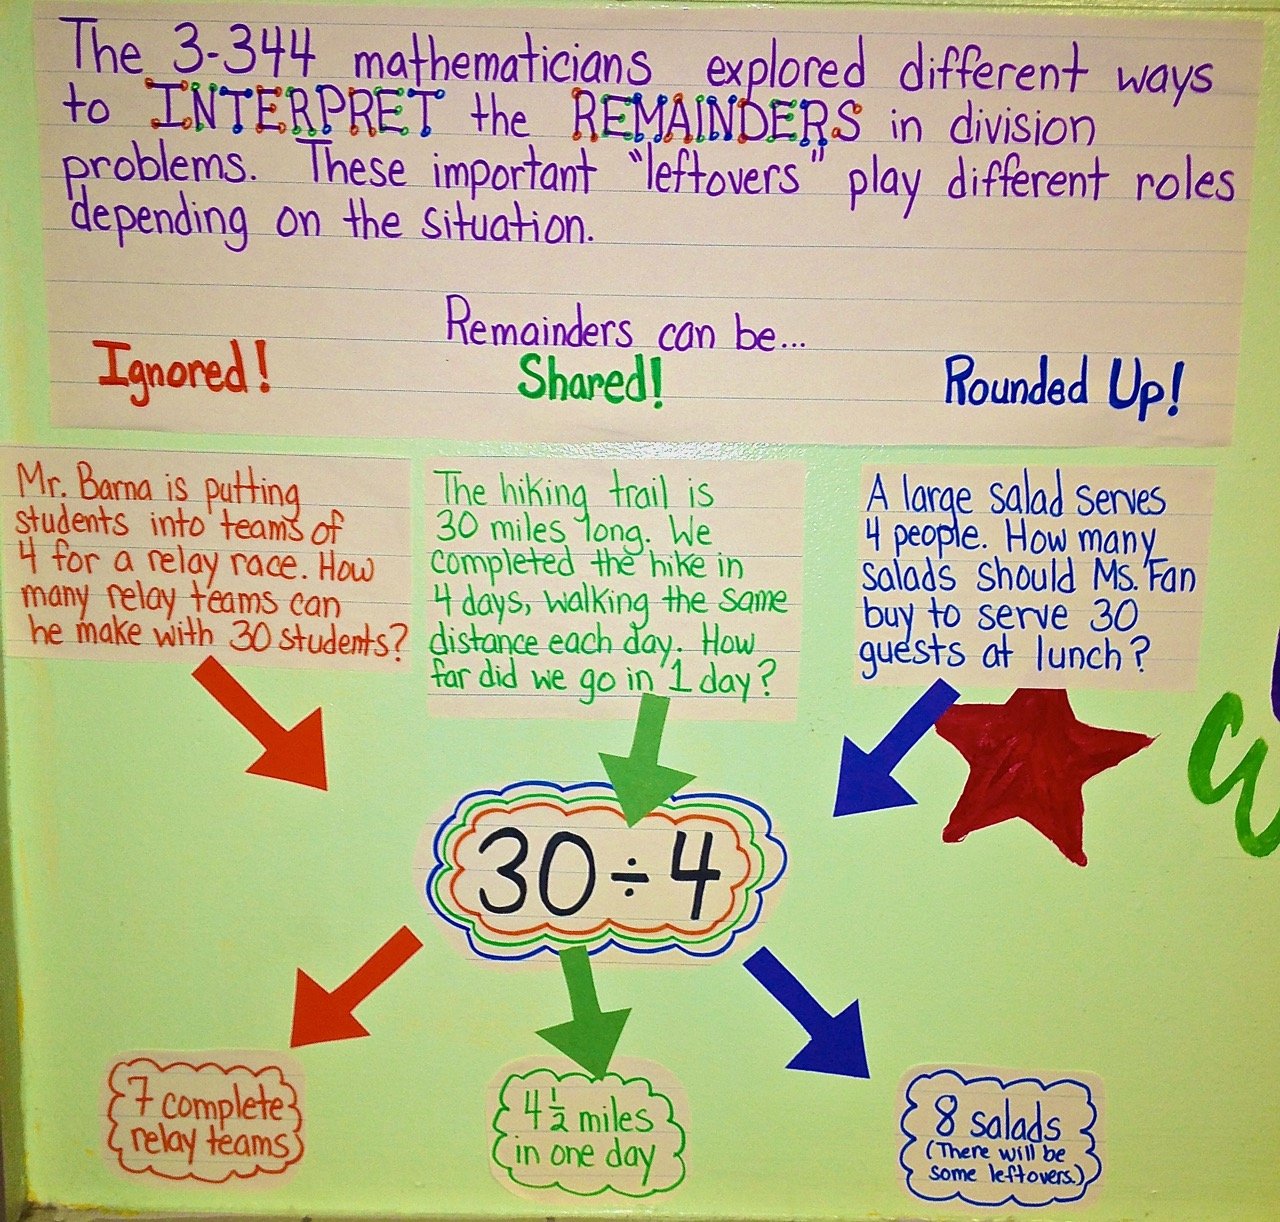 The 3-344 mathematicians explored different ways
to INTERPRET the REMAINDERS in division
problems. These important "leftovers" play different roles
depending on the situation.
Remainders can be...
Ignored!
Shared!
Rounded Up!
Mr. Barna is putting
students into teams of
4 for a relay race. How
many relay teams can
he make with 30 students?
The hiking trail is
30 miles long. We
completed the hike in
4 days, walking the same
distance each day. How
far did we go in 1 day?
A large salad serves
4 people. How many
salads should Ms. Fan
buy to serve 30
guests at lunch?
30÷4
7 complete
relay teams
4½ miles
in one day
8 salads
(There will be
some leftovers.)